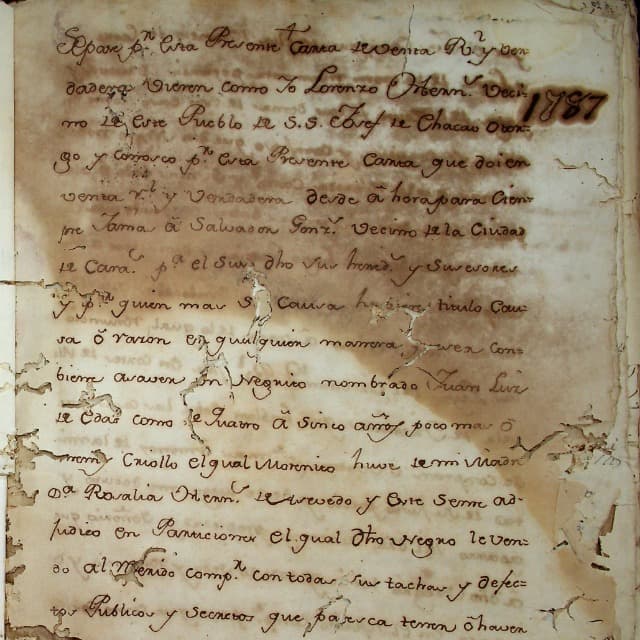 Sepase pr. Esta Presente Carta de venta Rl. y ver-
dadera vieren como Yo Lorenzo
no de Este Pueblo de S.S. Josef de Chacao Otor-
1787
go y conosco pr. Esta Presente Carta que doi en
venta rl. y verdadera desde ahora para Ciem-
pre Jama á Salvador Gonz. Vecino de la Ciudad
de Cara. pa. el Suso dho sus hered. y Susesores
y pa. quien mas Su Causa hubiere titulo Cau-
sa ó razon en qualquier manera
biene asaver Un Negrito nombrado Juan Luis
de Edad como de Quatro á Sinco años poco mas ó
menos Criollo el qual Morenito huve de mi Madre
Da. Rosalia de Asevedo y Este Seme ad-
judico en Particiones el qual dho Negro le ven-
do al comp. con todas sus tachas y defec-
tos Publicos y Secretos que paresca tener ó haver